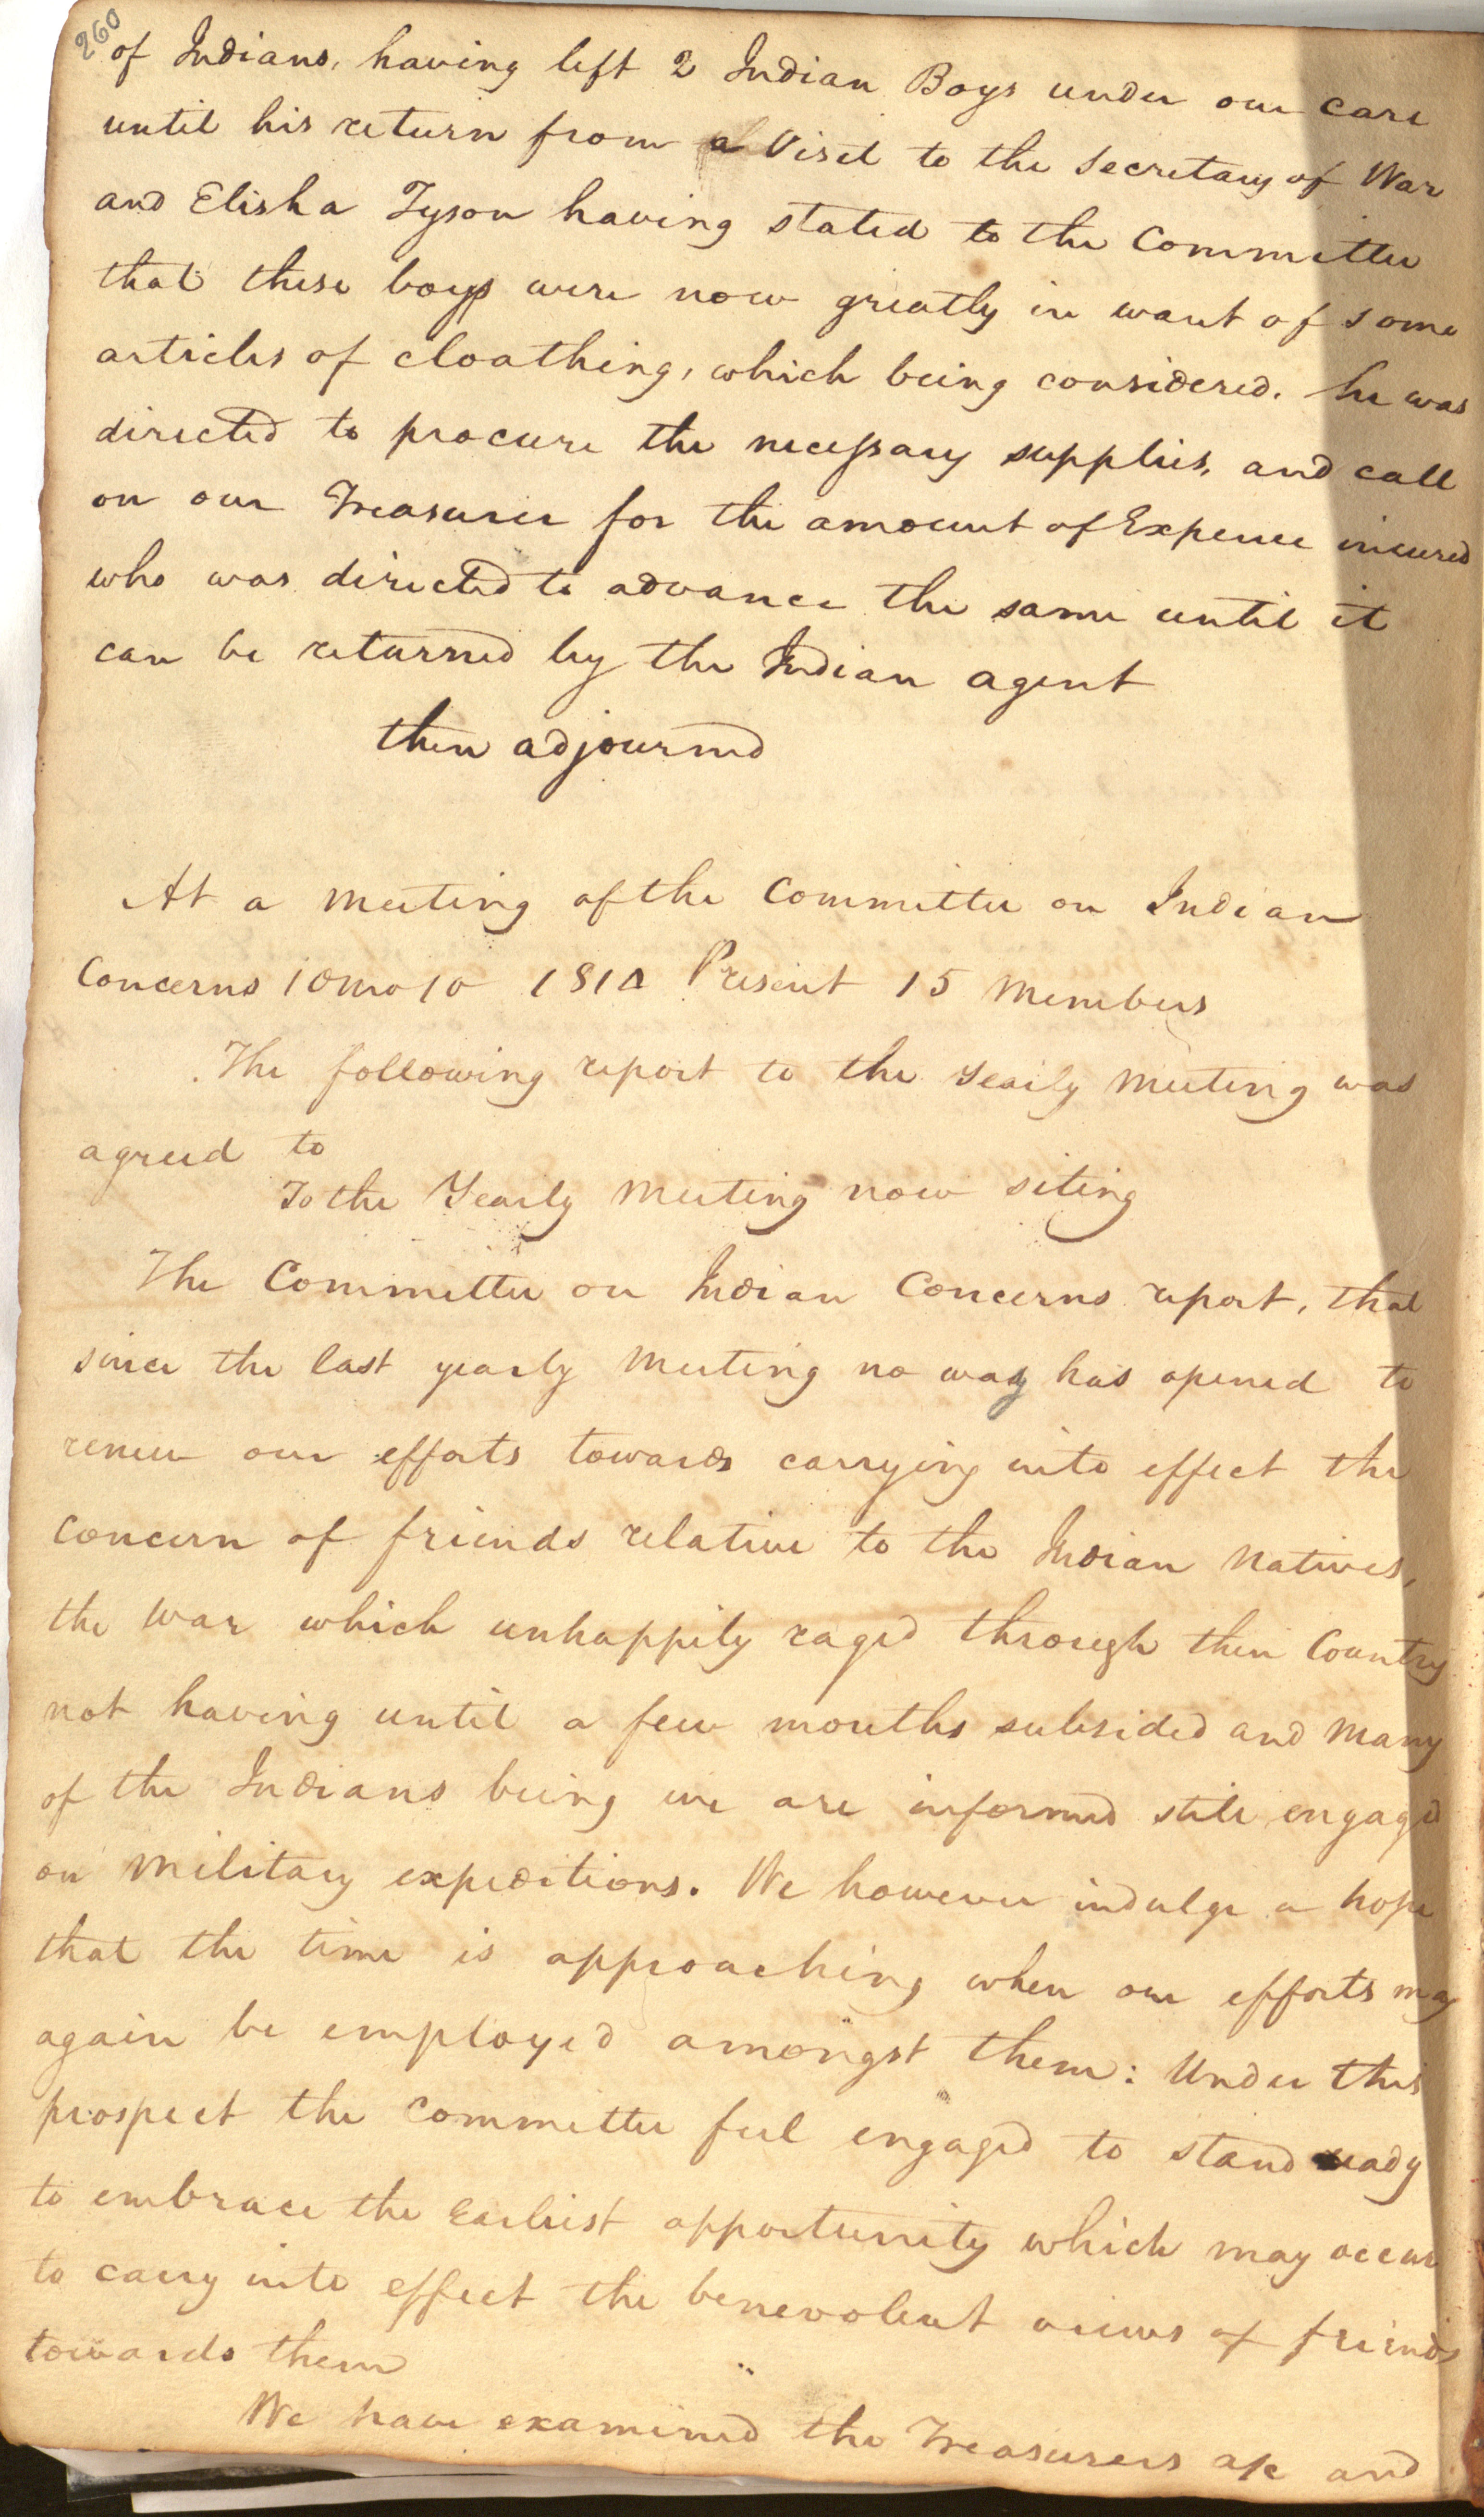 260
of Indians, having left 2 Indian Boys under our care
until his return from a Visit to the Secretary of War
and Elisha Tyson having stated to the Committee
that these boys were now greatly in want of some
articles of cloathing, which being considered. he was
directed to procure the necessary supplies, and call
on our Treasurer for the amount of Expence incured
who was directed to advance the same until it
can be returned by the Indian agent
then adjourned
At a Meeting of the Committee on Indian
Concerns 10mo 10 1814 Present 15 Members
The following report to the Yearly Meeting was
agreed to
To the Yearly Meeting now siting
The Committee on Indian Concerns report, that
since the last yearly Meeting no way has opened to
renew our efforts towards carrying into effect the
concern of friends relative to the Indian Natives,
the War which unhappily raged through their Country
not having until a few months subsided and Many
of the Indians being we are informed still engaged
on Military expeditions. We however indulge a hope
that the time is approaching when our efforts may
again be employed amongst them: Under this
prospect the Committee feel engaged to stand ready
to embrace the Earliest opportunity which may occur
to carry into effect the benevolent views of friends
towards them
We have examined the Treasurers a/c and